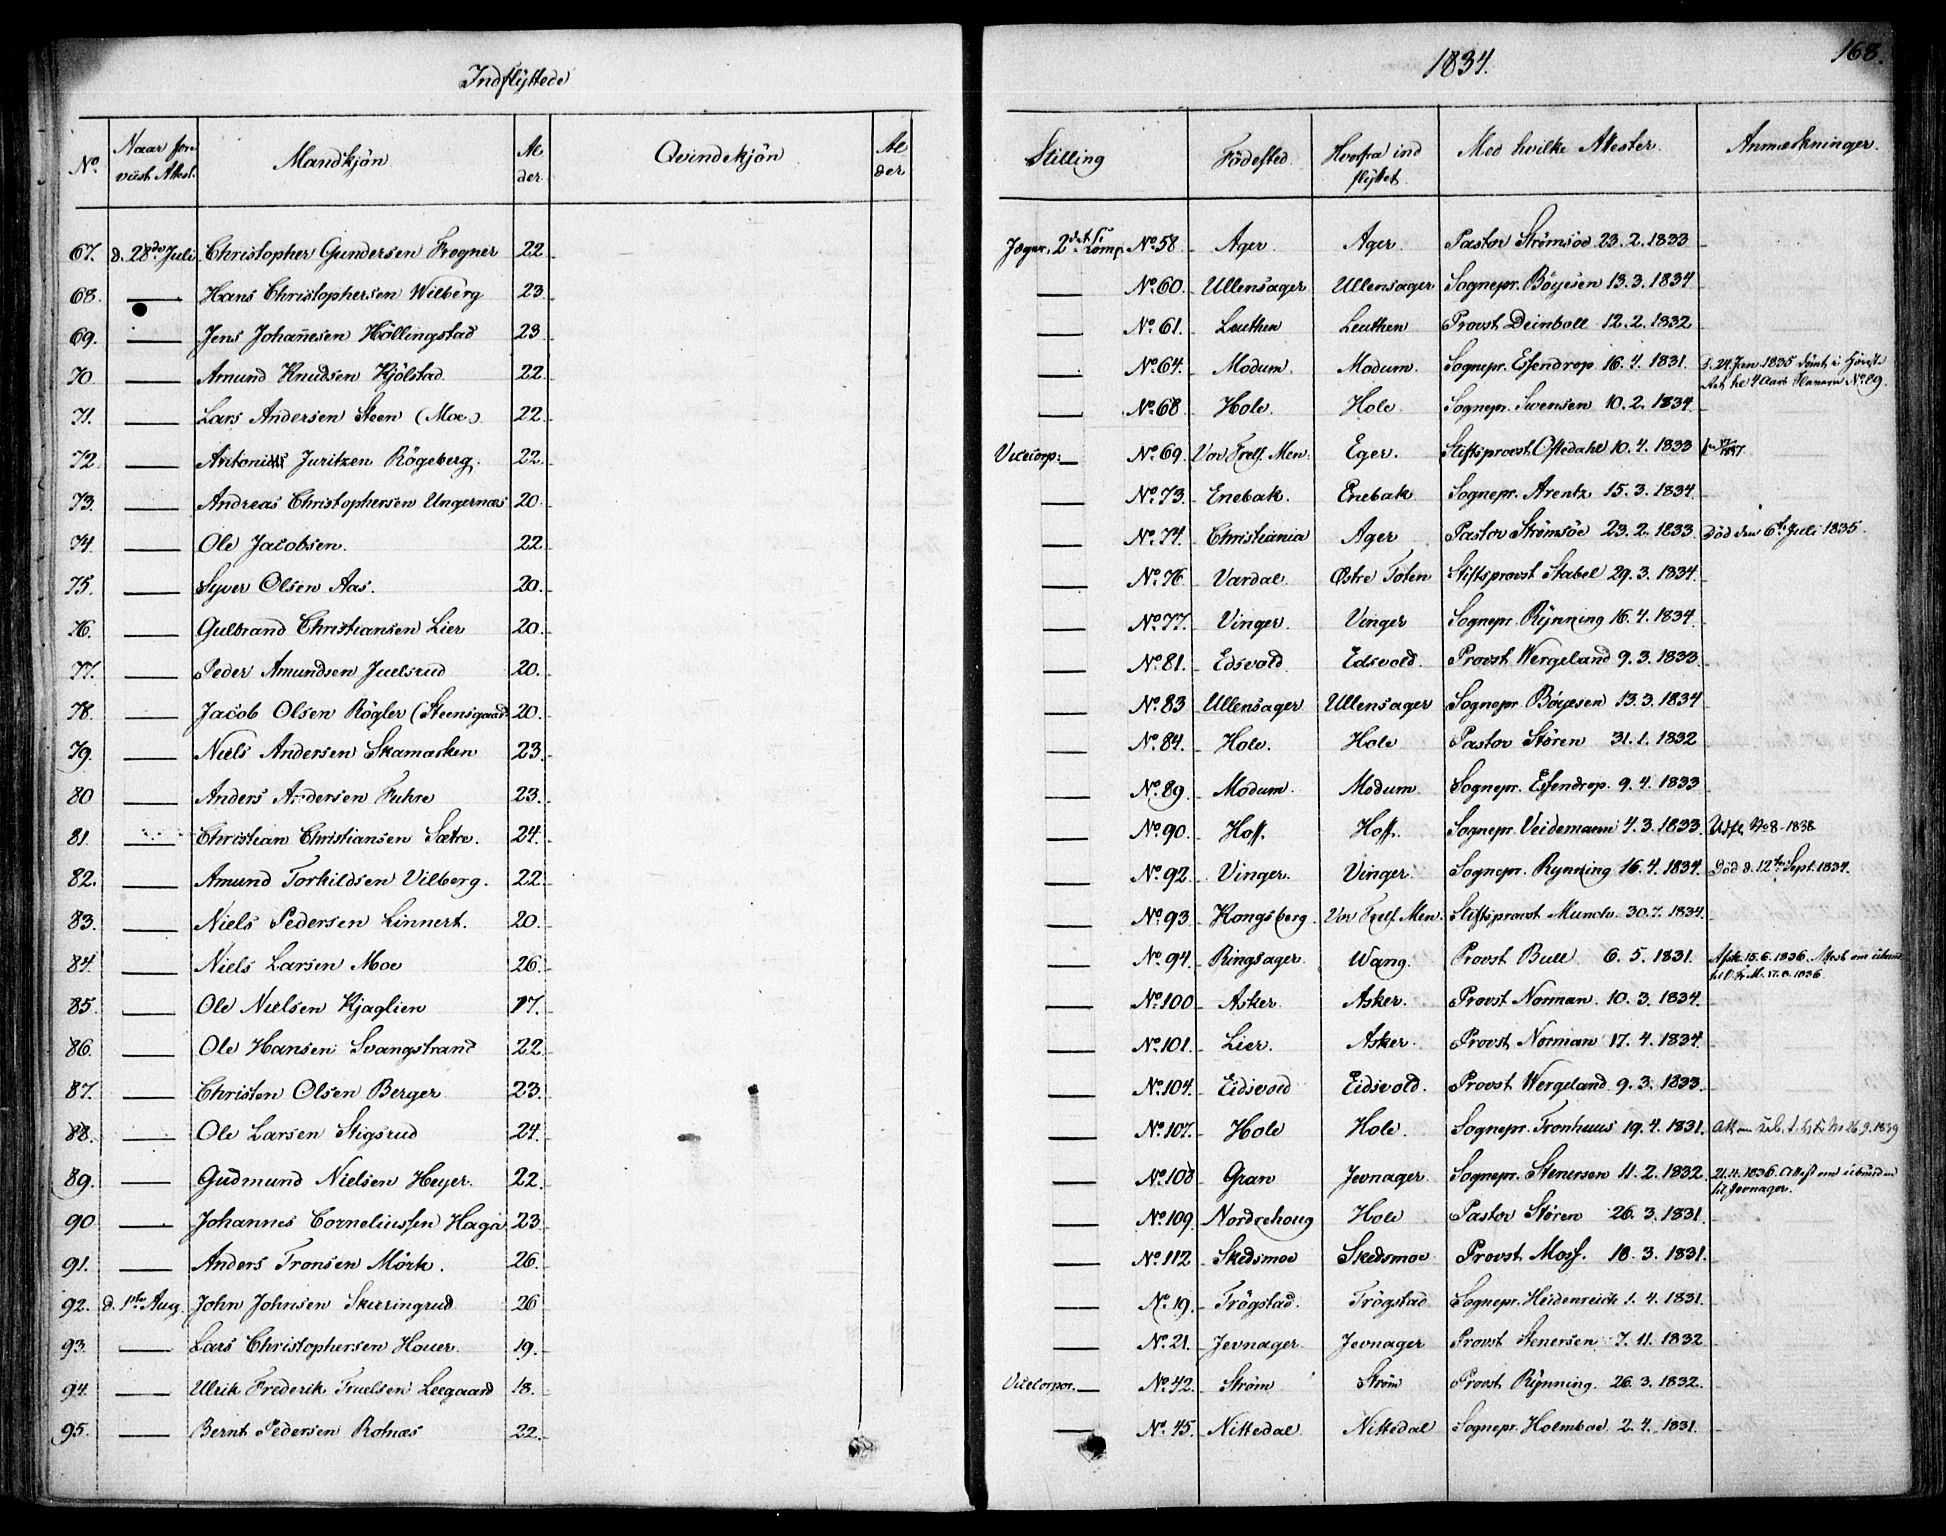 Indflyttede
1834.
168.
No. Naar fore vüst Attest. Mandkjön Al der Qvindekjön Al der Stilling Födested. Hvorfra ind flyttet. Med hvilke Attester. Anmærkninger.
67. d. 28de Juli Christopher Gundersen Frogner 22 Jæger. 2det Komp. No. 58 Ager. Ager. Pastor Strømsöe 23. 2. 1833
68. — Hans Christophersen Wilberg 23 — No. 60. Ullensager Ullensager Sognepr. Böyesen 13. 3. 1834
69. — Jens Johannesen Höllingstad 23. — No. 61. Leuthen Leuthen Provst Deinboll 12. 2. 1832
70 — Amund Knudsen Kjölstad 22 — No. 64. Modum. Modum. Sognepr. Esendrop 16. 4. 1831. d. 24 Jan 1835 dömt i
4 Aars Slaveri No. 89.
71. — Lars Andersen Steen (Moe) 22. — No. 68 Hole. Hole. Sognepr. Svensen 10. 2. 1834
72. — Antonius Juritzen Rögeberg. 22. Vicecorp: — No. 69. Vor Frelf. Men: Eger. Stiftsprovst Oftedahl 10. 4. 1833
73. — Andreas Christophersen Ungernæs 20. — No. 73. Enebak. Enebak Sognepr. Arentz 15. 3. 1834.
74. — Ole Jacobsen. 22. — No. 74. Christiania Ager Pastor Strømsöe 23. 2. 1833. Död den 6te Juli 1835.
75. — Syver Olsen Aas. 20. — No. 76 Vardal. Østre Toten Stiftsprovst Stabel 29. 3. 1834.
76. — Gulbrand Christiansen Lier 20. — No. 77. Vinger. Vinger Sognepr. Rÿnning 16. 4. 1834.
77. — Peder Amundsen Juelsrud 20. — No. 81. Edsvold Edsvold. Provst Wergeland 9. 3. 1833.
78. — Jacob Olsen Rögler (Steensgaard 20. — No. 83 Ullensager Ullensager Sognepr. Böyesen 13. 3. 1834
79. — Niels Andersen Skamarken 23. — No. 84. Hole. Hole Pastor Støren 31. 1. 1832
80 — Anders Andersen Fuhre 23. — No. 89. Modum. Modum Sognepr. Esendrop. 9. 4. 1833
81. Christian Christiansen Sætre. 24. — No. 90. Hoff. Hoff. Sognepr. Veidemann 4. 3. 1833. Udfl. No 8 - 1838
82. — Amund Torkildsen Vilberg. 22. — No. 92. Vinger. Vinger. Sognepr. Rynning 16. 4. 1834. Död d. 12te Sept. 1834.
83. — Niels Pedersen Linnert. 20. — No. 93. Kongsberg. Vor Frelf. Men. Stiftsprovst Munch. 30. 7. 1834.
84. — Niels Larsen Moe 26. — No. 94. Ringsager. Wang. Provst Bull 6. 5. 1831. Afsk. 15. 6. 1836.
1836
85. — Ole Nielsen Kjaglien 17. — No. 100. Asker. Asker. Provst Norman. 10. 3. 1834.
86. — Ole Hansen Svangstrand 22. — No. 101. Lier. Asker. Provst Norman 17. 4. 1834.
87. — Christen Olsen Berger 23. — No. 104. Eidsvold Eidsvold. Provst Wergeland 9. 3. 1833.
88. — Ole Larsen Stigsrud 24. — No. 107. Hole Hole. Sognepr. Tronhuus 19. 4. 1831. 26. 9. 1839
89. — Gudmund Nielsen Heyer. 22. — No. 108 Gran Jevnager. Sognepr. Stenersen 11. 2. 1832. 21. 11. 1836. Attest om ubunden
til Jevnager.
90 — Johannes Corneliussen Haga 23 — No. 109. Nordrehoug Hole Pastor Støren 26. 3. 1831.
91. — Anders Tronsen Mörk. 26. — No. 112 Skedsmoe Skedsmoe Provst Moss. 18. 3. 1831.
92. d. 1ste Aug. John Johnsen Skirringrud. 26 — No. 19. Trögstad. Trögstad. Sognepr. Heidenreich 1. 4. 1831.
93. — Lars Christophersen Houer. 19. — No. 21. Jevnager. Jevnager Provst Stenersen 7. 11. 1832
94. — Ulrik Frederik Truelsen Leegaard 18. Vicecorpor. — No. 42. Strøm Strøm Provst Rÿnning. 26. 3. 1832.
95. — Bernt Pedersen Rotnæs 22. — No. 45. Nittedal Nittedal Sognepr. Holmboe 2. 4. 1831.